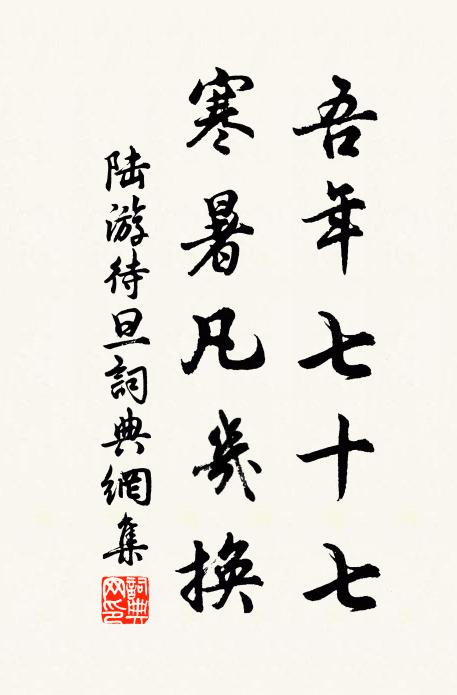 吾年七十七
寒暑凡幾換
陸游待旦詞典網集
詞典网印